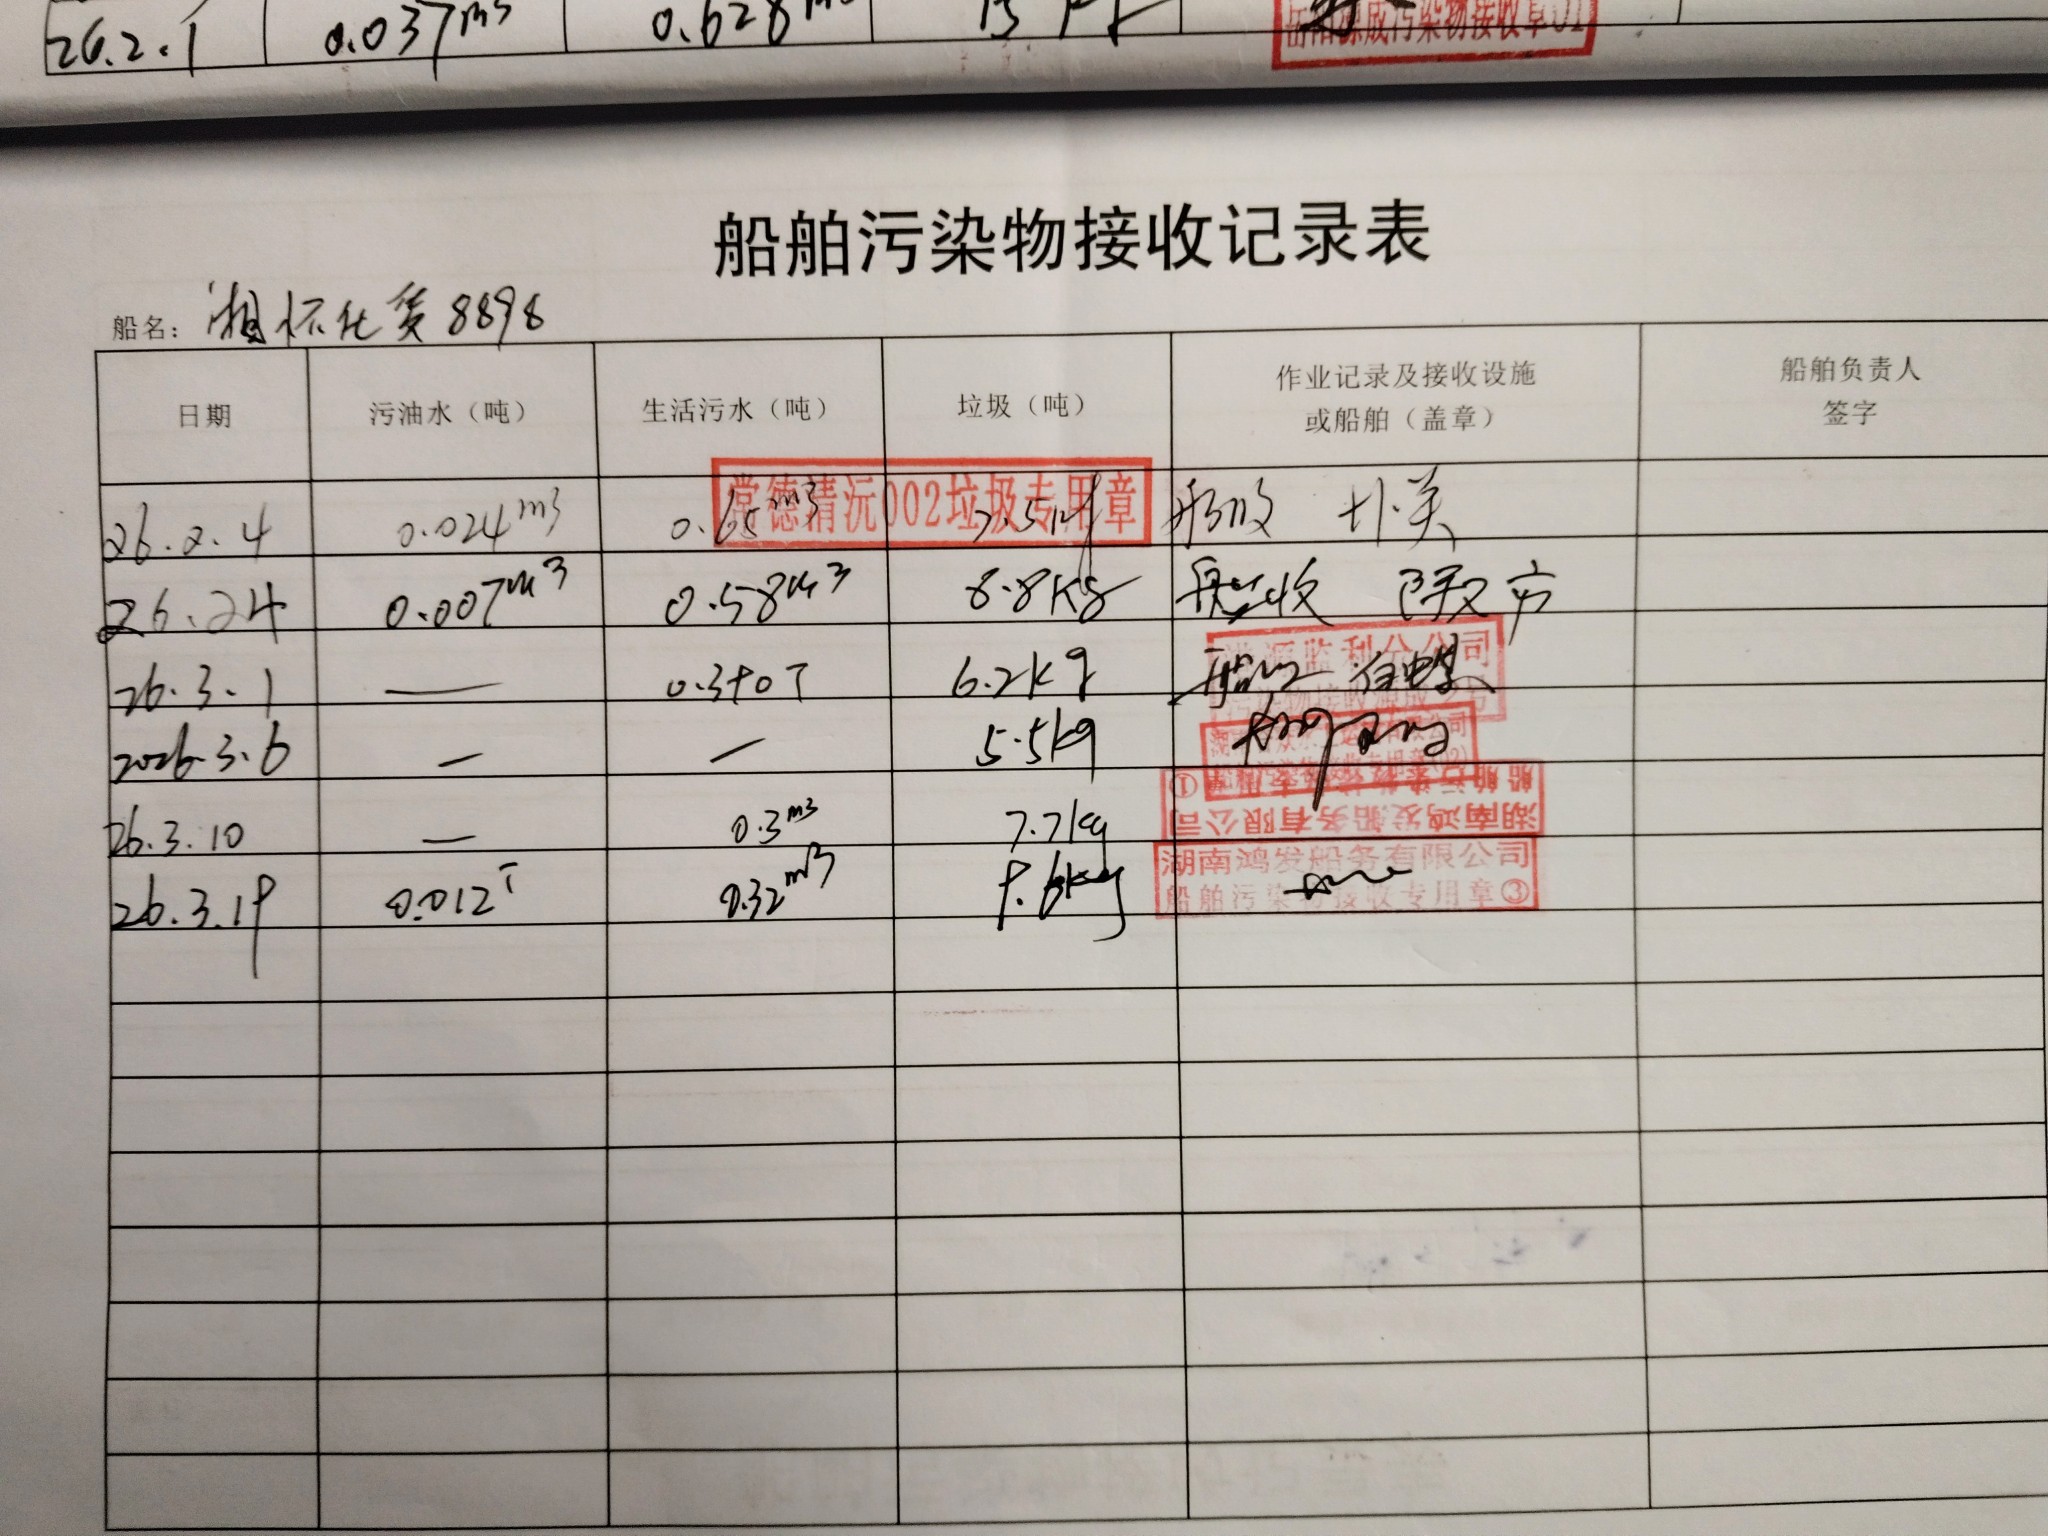 26.2.1 0.037m3 0.628
岳阳源成污染物接收章01
船舶污染物接收记录表
船名：湘怀化货8898
日期 污油水（吨） 生活污水（吨） 垃圾（吨） 作业记录及接收设施 船舶负责人
或船舶（盖章） 签字
常德清沅002垃圾专用章
26.2.4 0.024m3 0.65m3 7.5kg
26.2.4 0.007m3 0.58m3 8.8kg 船收
监利分公司
26.3.1 — 6.2kg
2026.3.6 — — 5.5kg
船舶污染物接收专用章①
湖南鸿发船务有限公司
26.3.10 — 0.3m3 7.7kg
湖南鸿发船务有限公司
26.3.19 0.012T 0.32m3 9.6kg
船舶污染物接收专用章③